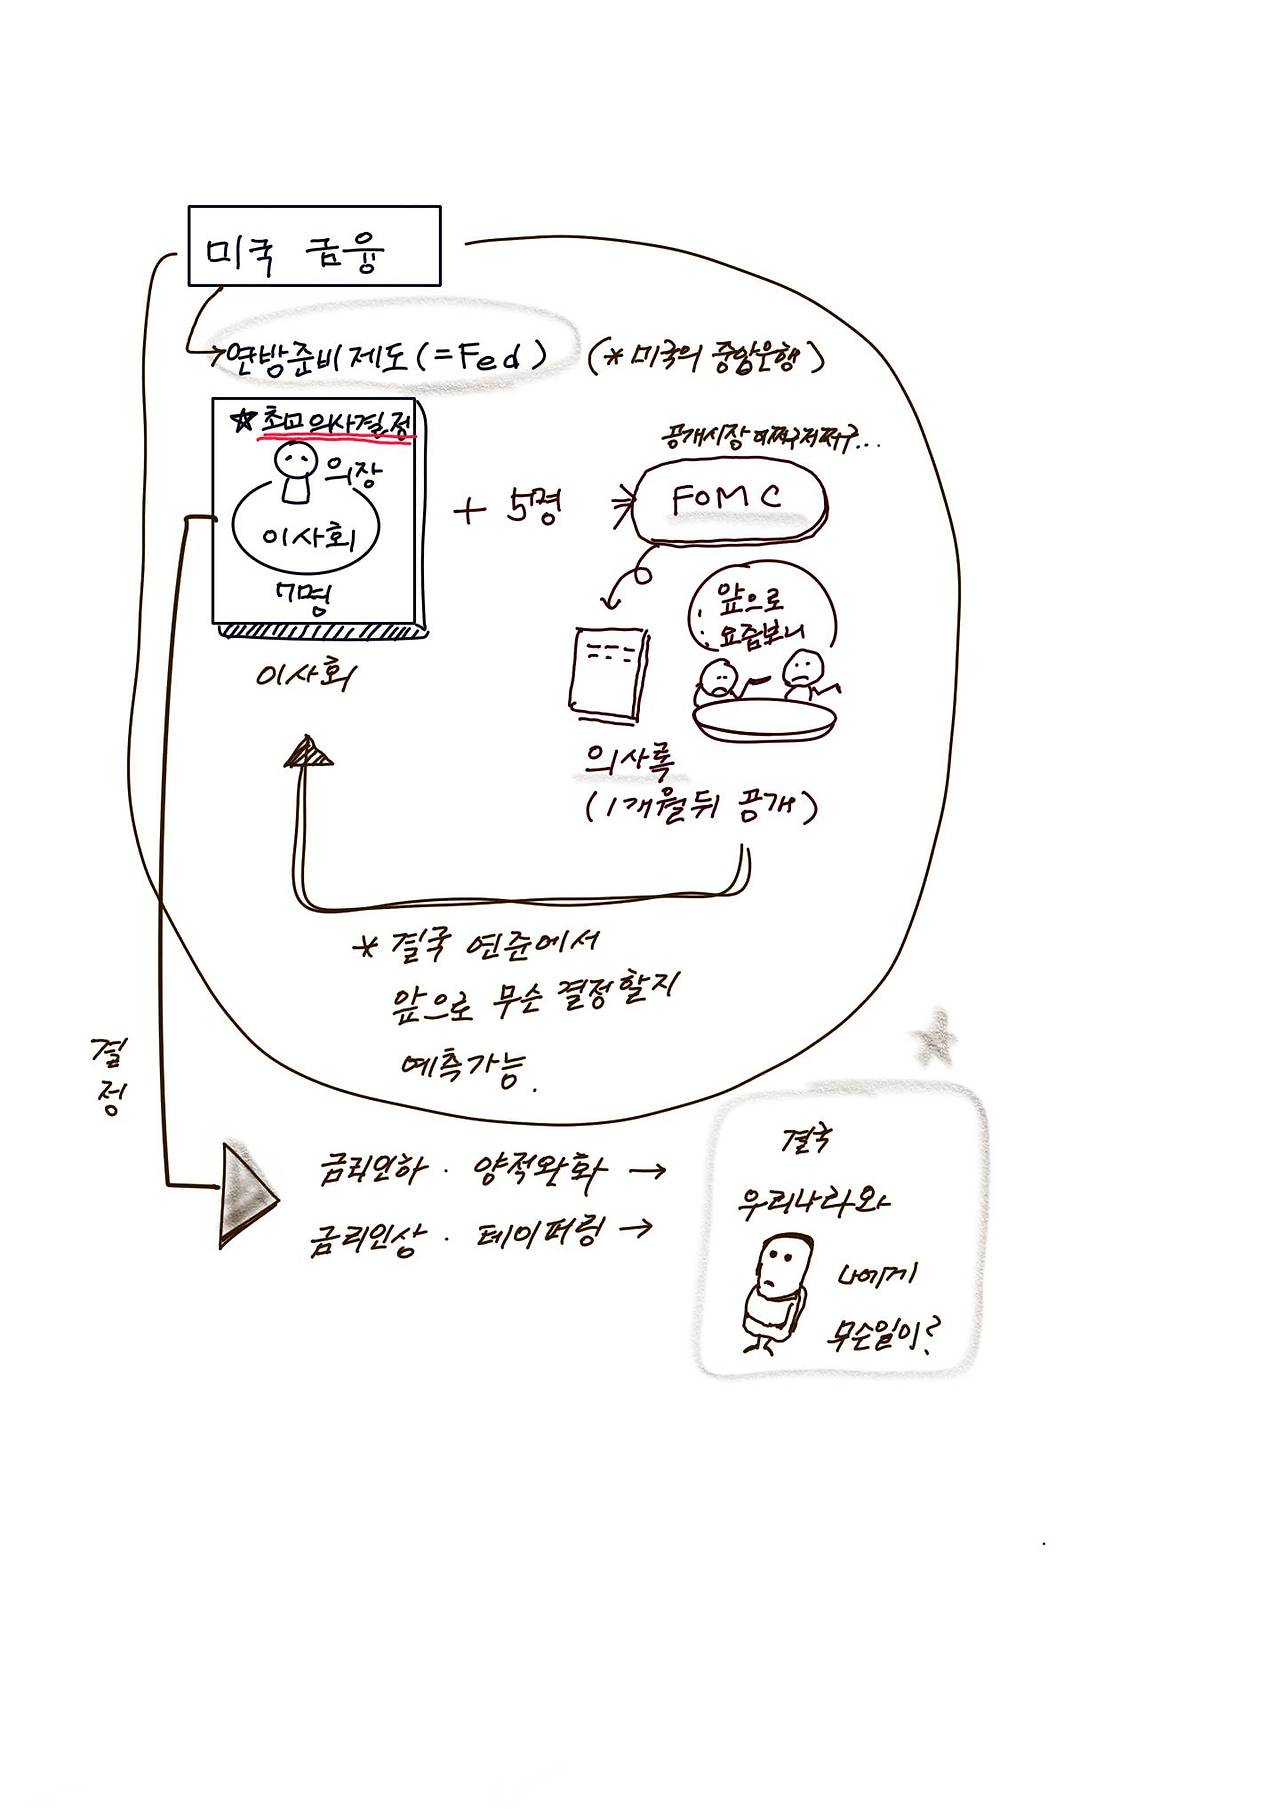 미국 금융
연방준비제도(=Fed) (* 미국의 중앙은행)
☆최고의사결정
의장
이사회
7명
이사회
+ 5명
공개시장 어쩌구저쩌구...
FOMC
앞으로
요즘보니
의사록
(1개월뒤 공개)
* 결국 연준에서
앞으로 무슨 결정할지
예측가능.
결
정
금리인하 · 양적완화 →
금리인상 · 테이퍼링 →
결국
우리나라와
나에게
무슨일이?